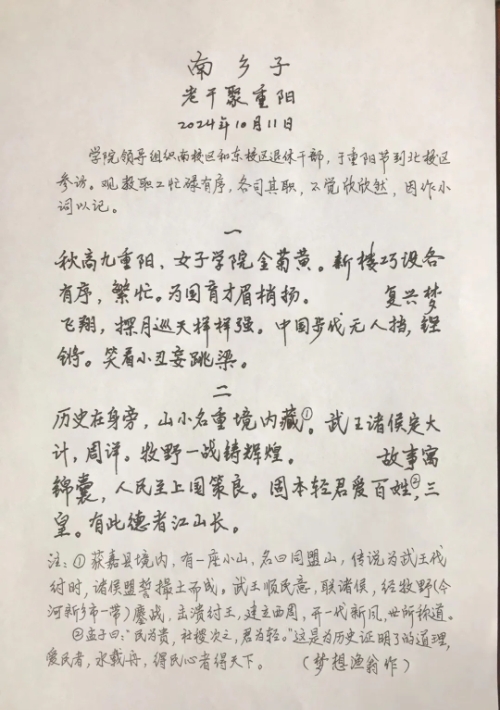 南乡子
老干聚重阳
2024年10月11日
学院领导组织南校区和东校区退休干部，于重阳节到北校区
参访。观教职工忙碌有序，各司其职，不觉欣欣然，因作小
词以记。
一
秋高九重阳，女子学院金菊黄。新楼巧设各
有序，繁忙。为国育才眉梢扬。 复兴梦
飞翔，探月巡天样样强。中国步伐无人挡，铿
锵。笑看小丑妄跳梁。
二
历史在身旁，山小名重境内藏①。武王诸侯定大
计，周详。牧野一战铸辉煌。 故事寓
锦囊，人民至上国策良。固本轻君爱百姓②，三
皇。有此德者江山长。
注：①获嘉县境内，有一座小山，名曰同盟山，传说为武王伐
纣时，诸侯盟誓撮土而成。武王顺民意，联诸侯，经牧野（今
河新乡市一带）鏖战，击溃纣王，建立西周，开一代新风，世所称道。
②孟子曰：“民为贵，社稷次之，君为轻。”这是为历史证明了的道理，
爱民者，水载舟，得民心者得天下。 （梦想渔翁作）